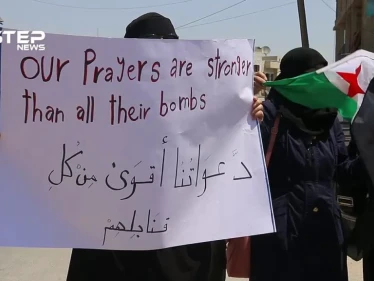 STEP
NEWS
Our Prayers are stronger
than all their bombs
دَعَوَاتُنا أقوَىٰ مِنْ كُلِ
قنابلِهِمْ